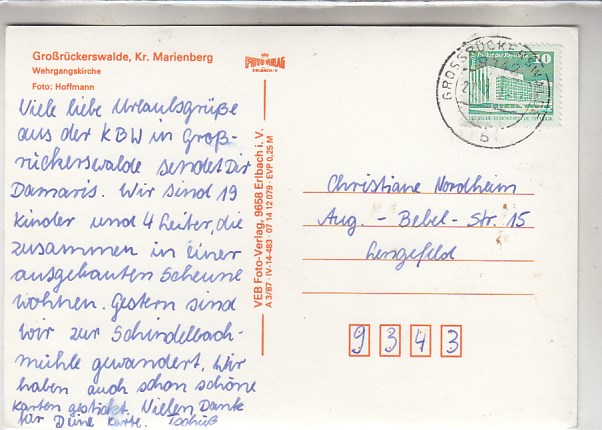 Großrückerswalde, Kr. Marienberg
Wehrgangskirche
Foto: Hoffmann
FOTO VERLAG
ERLBACH i.V.
Viele liebe Urlaubsgrüße
aus der KBW in Groß-
rückerswalde sendet Dir
Damaris. Wir sind 19
Kinder und 4 Leiter, die
zusammen in einer
ausgebauten Scheune
wohnen. Gestern sind
wir zur Schindelbach-
mühle gewandert. Wir
haben auch schon schöne
Karten gestickt. Vielen Dank
für Deine Karte. Tschüß
VEB Foto-Verlag, 9658 Erlbach i. V.
A 3/87 · IV-14-483 · 07 14 12 079 · EVP 0,25 M
GROSSRÜCKERSWALDE
b
10
Christiane Nordheim
Aug.-Bebel-Str. 15
Lengefeld
9343